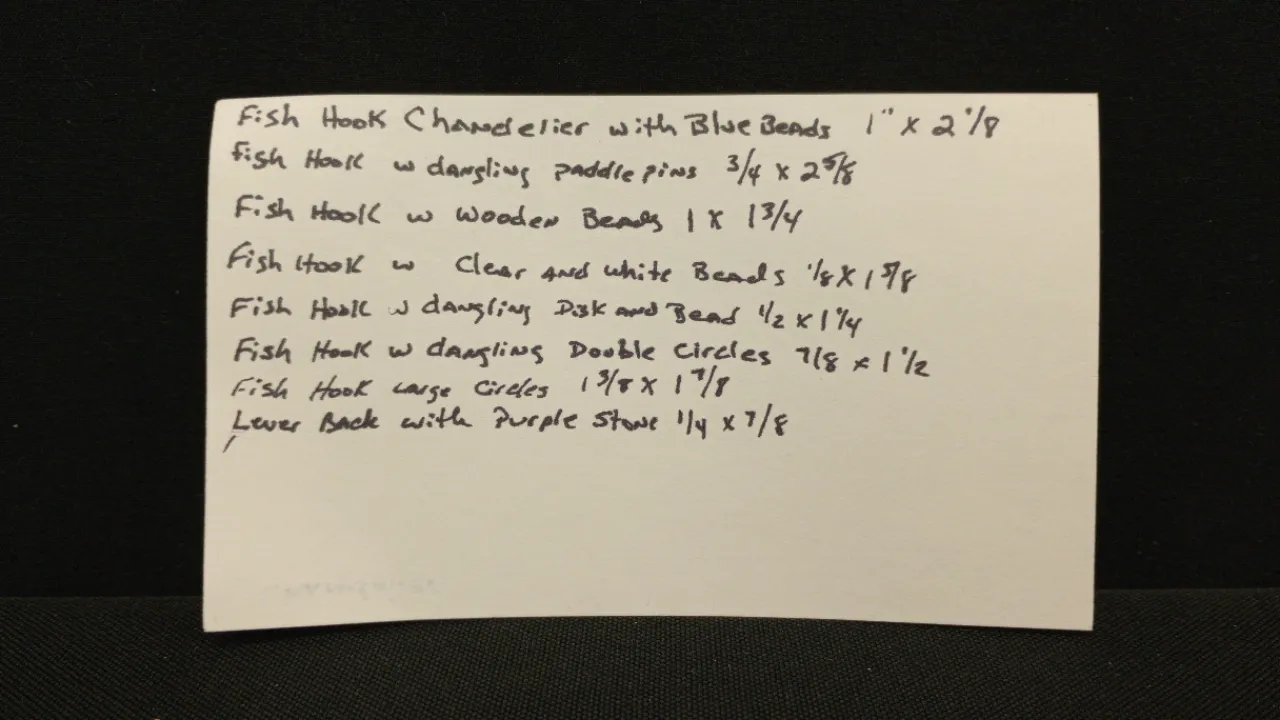 Fish Hook Chandelier with Blue Beads 1" x 2 1/8
Fish Hook w dangling paddle pins 3/4 x 2 5/8
Fish Hook w Wooden Beads 1 x 1 3/4
Fish Hook w Clear and white Beads 1/8 x 1 5/8
Fish Hook w dangling Disk and Bead 1/2 x 1 1/4
Fish Hook w dangling Double Circles 7/8 x 1 1/2
Fish Hook Large Circles 1 3/8 x 1 7/8
Lever Back with Purple Stone 1/4 x 7/8